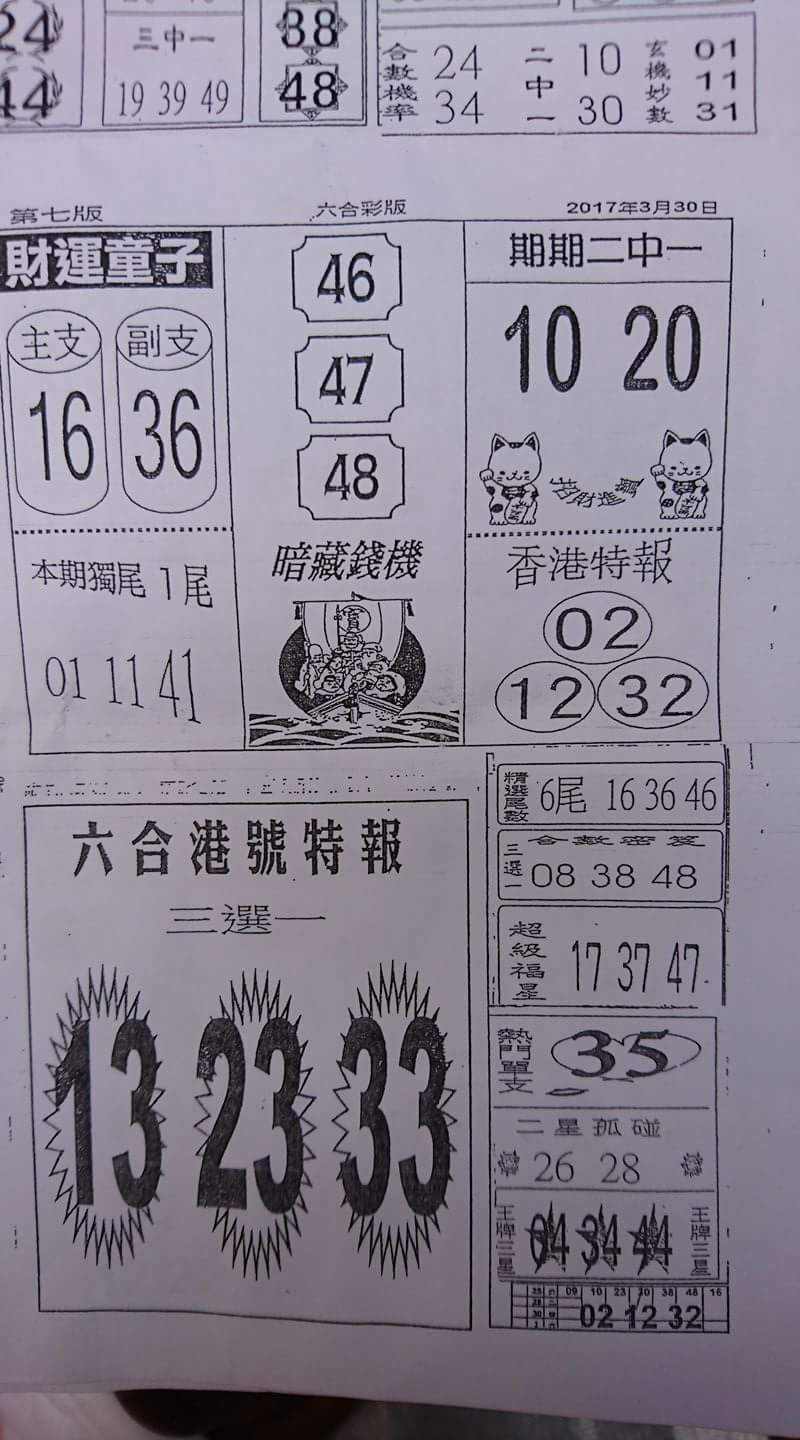 24
44
三中一
19 39 49
38
48
合數機率 24 34
二中一 10 30
玄機妙數 01 11 31
第七版 六合彩版 2017年3月30日
財運童子
主支 副支
16 36
本期獨尾 1尾
01 11 41
46
47
48
暗藏錢機
寶
期期二中一
10 20
招財進寶
香港特報
02
12 32
六合港號特報
三選一
13 23 33
精選尾數 6尾 16 36 46
合數密笈
三選一 08 38 48
超級福星 17 37 47
熱門單支 35
二星孤碰
26 28
王牌三星 04 34 44 王牌三星
09 10 23 30 38 48 16
02 12 32